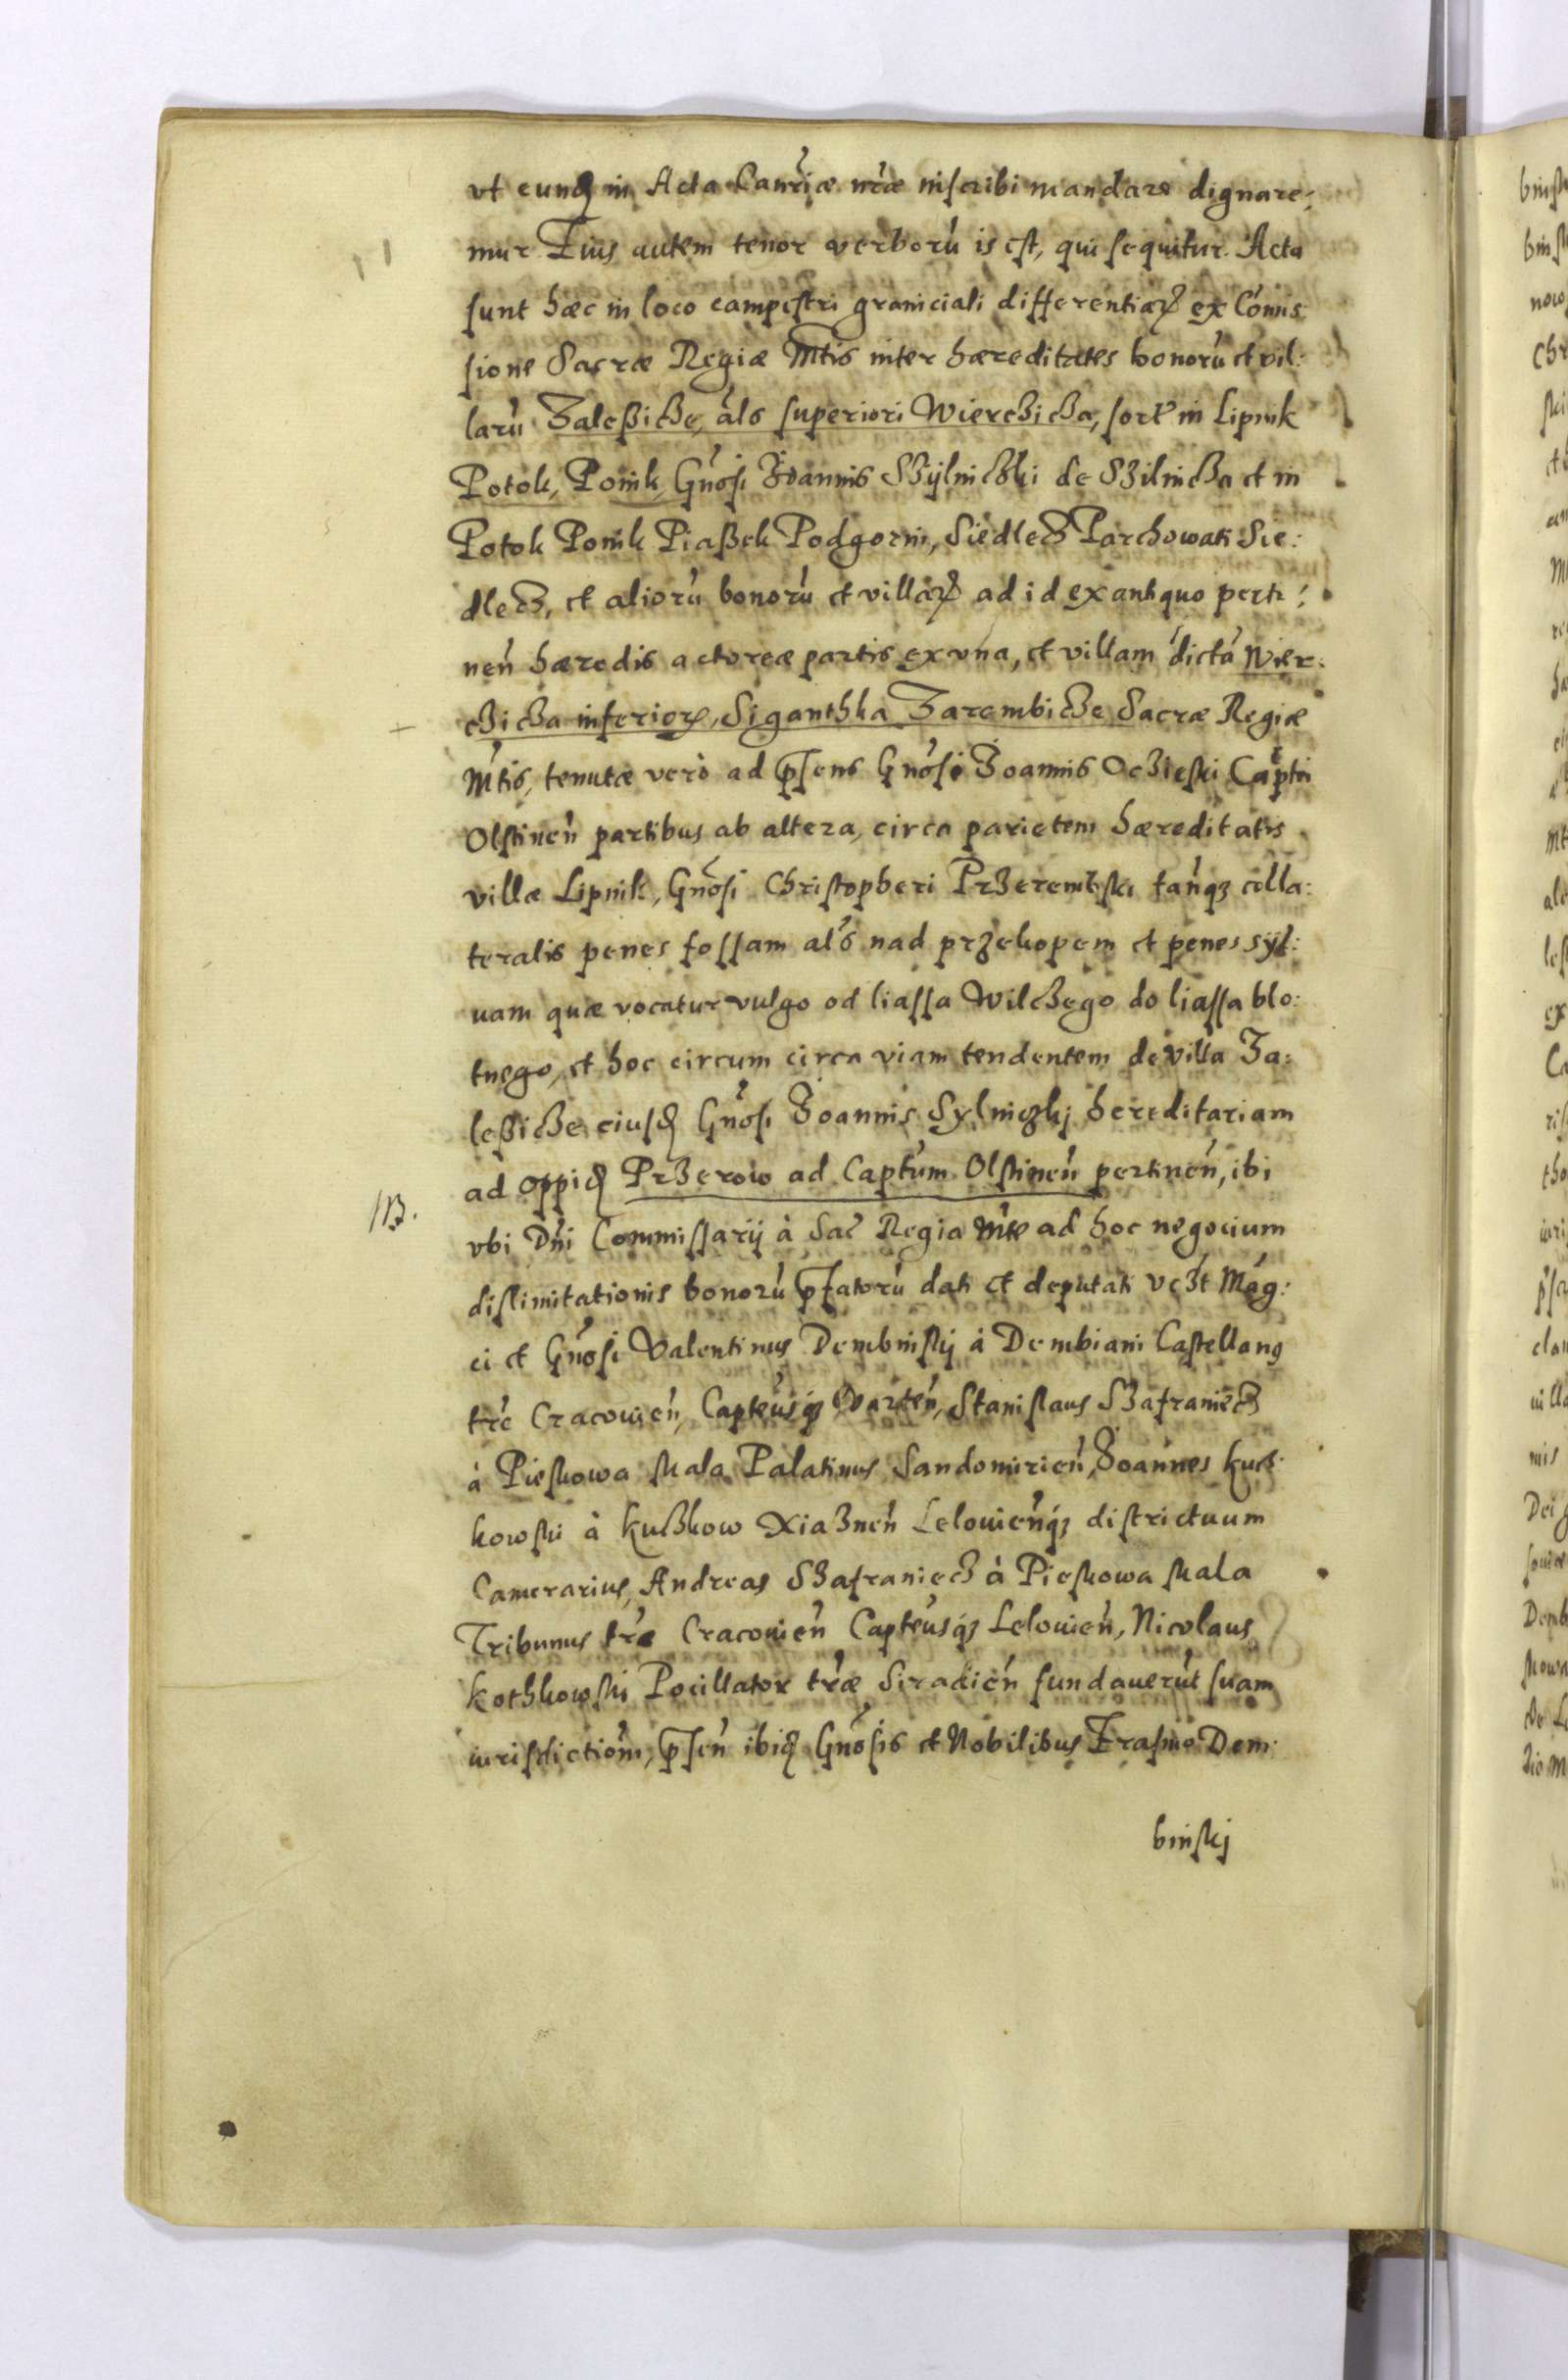 vt eund in Acta Canriæ nræ inscribi mandare dignare:
mur Eius autem tenor verborũ is est, qui sequitur. Acta
sunt hæc in loco campestri graniciali differentiaꝝ ex Comis:
sione Sacræ Regiæ Mtis inter hæreditates bonorũ et vil:
larũ Zaleßicze, als superiori Wierczicza, sorte in Lipnik
Potok, Ponik, Gnosi Joannis Szÿlniczki de Szilnicza et in
Potok Ponik Piaßek Podgorni, Siedlecz Parchowati Sie:
dlecz, et aliorũ bonorũ et villaꝝ ad id ex antiquo perti:
neñ hæredis actoreæ partis ex vna, et villam dictã Wier:
czicza inferioꝝ, Siganthka Zarembicze Sacræ Regiæ
Mtis, tenutæ verò ad pſens Gnosi Joannis Oczieski Captei
Olstineñ partibus ab altera, circa parietem hæreditatis
villæ Lipnik, Gnosi Christopheri Przerembski tanqꝫ colla:
teralis penes fossam als nad przekopem et penes syl:
uam quæ vocatur vulgo od liassa Wilczego do liassa blo:
tnego, et hoc circum circa viam tendentem de villa Za:
leßicze eiusd Gnosi Joannis Sylniczkj hereditariam
ad oppid Przerow ad Captum Olstineñ pertineñ, ibi
NB.
vbi Dni Commissarij à Sac Regia Mte ad hoc negocium
dislimitationis bonorũ pfatorũ dati et deputati vczt Mag:
ci et Gnosi Valentinus Dembinskij à Dembiani Castellang
tre Cracouieñ, Capteusqꝫ Warteñ, Stanislaus Szafraniecz
à Pieskowa skala Palatinus Sandomirieñ, Joannes kucz:
kowski à kuczkow Xiazneñ Lelouieñqꝫ districtuum
Camerarius, Andreas Szafraniecz à Pieskowa skala
Tribunus træ Cracouieñ Capteusqꝫ Lelouieñ, Nicolaus
kothkowski Pocillator træ Siradieñ fundauerũt suam
iurisdictiom, pſeñ ibid Gnosis et Nobilibus Erasmo Dem:
binskj